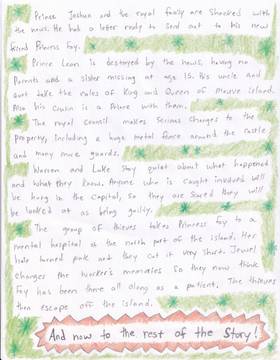 Prince Jeshua and the royal family are shocked with
the news. He had a letter ready to send out to his new
friend Princess Fay.
Prince Leon is destroyed by the news, having no
Parents and a sister missing at age 15. His uncle and
aunt take the roles of King and Queen of Meuve island.
Also his Cousin is a Prince with them.
The royal council makes serious changes to the
property, including a huge metal fence around the castle
and many more guards.
Warren and Luke stay quiet about what happened
and what they know. Anyone who is caught involved will
be hung in the Capitol, so they are scared they will
be looked at as being guilty.
The group of thieves takes Princess Fay to a
mental hospital at the north part of the island. Her
hair turned pink and they cut it very short. Jewel
changes the worker's memories so they now think
Fay has been there all along as a patient. The thieves
then escape off the island.
And now to the rest of the Story!